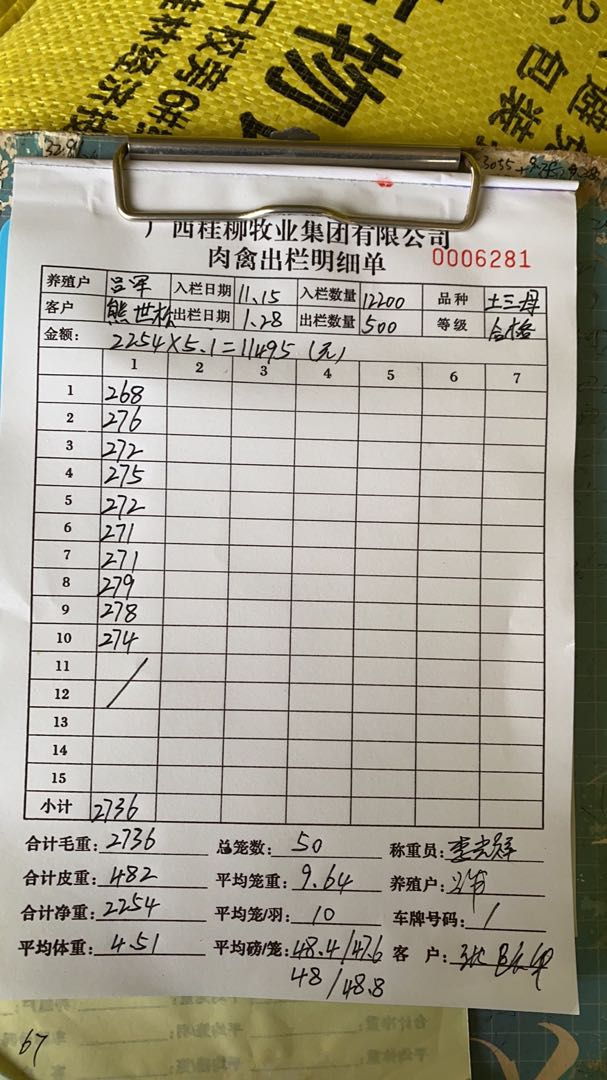 物
包装
3055+
广西桂柳牧业集团有限公司
肉禽出栏明细单 0006281
养殖户 吕军 入栏日期 11.15 入栏数量 12200 品种 土三母
客户 熊世 出栏日期 1.28 出栏数量 500 等级 合格
金额: 2254×5.1=11495 (元)
1 2 3 4 5 6 7
1 268
2 276
3 272
4 275
5 272
6 271
7 271
8 279
9 278
10 274
11
12
13
14
15
小计 2736
合计毛重: 2736 总笼数: 50 称重员:
合计皮重: 482 平均笼重: 9.64 养殖户:
合计净重: 2254 平均笼/羽: 10 车牌号码: /
平均体重: 4.51 平均磅/笼: 48.4/47.6 客 户:
48/48.8
67